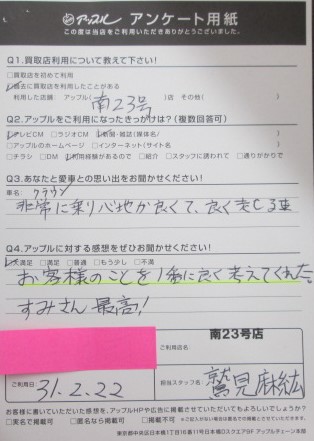 アップル アンケート用紙
この度は当店をご利用いただきありがとうございました。
Q1.買取店利用について教えて下さい!
□買取店を初めて利用
☑過去に買取店を利用したことがある
利用した店舗 アップル(南23号)店 その他( )
Q2.アップルをご利用になったきっかけは?(複数回答可)
☑テレビCM □ラジオCM ☑新聞・雑誌(媒体名/ )
□アップルのホームページ □インターネット(サイト名 )
□チラシ □DM ☑利用経験があるので □紹介 □スタッフに誘われて □通りがかりで
Q3.あなたと愛車との思い出をお聞かせください!
車名: クラウン
非常に乗り心地が良くて、良く走る車
Q4.アップルに対する感想をぜひお聞かせください!
☑大満足 □満足 □普通 □もう少し □不満
お客様のことを1番に良く考えてくれた。
すみさん最高!
ご利用店名
南23号店
ご利用日 31.2.22
担当スタッフ名 鷲見麻紘
お客様に書いていただいた感想を、アップルHPや広告に掲載させていただいてもよろしいでしょうか?
□実名で掲載可 □匿名なら掲載可 □掲載不可
東京都中央区日本橋1丁目16番11号日本橋Dスクエア5F アップルチェーン本部